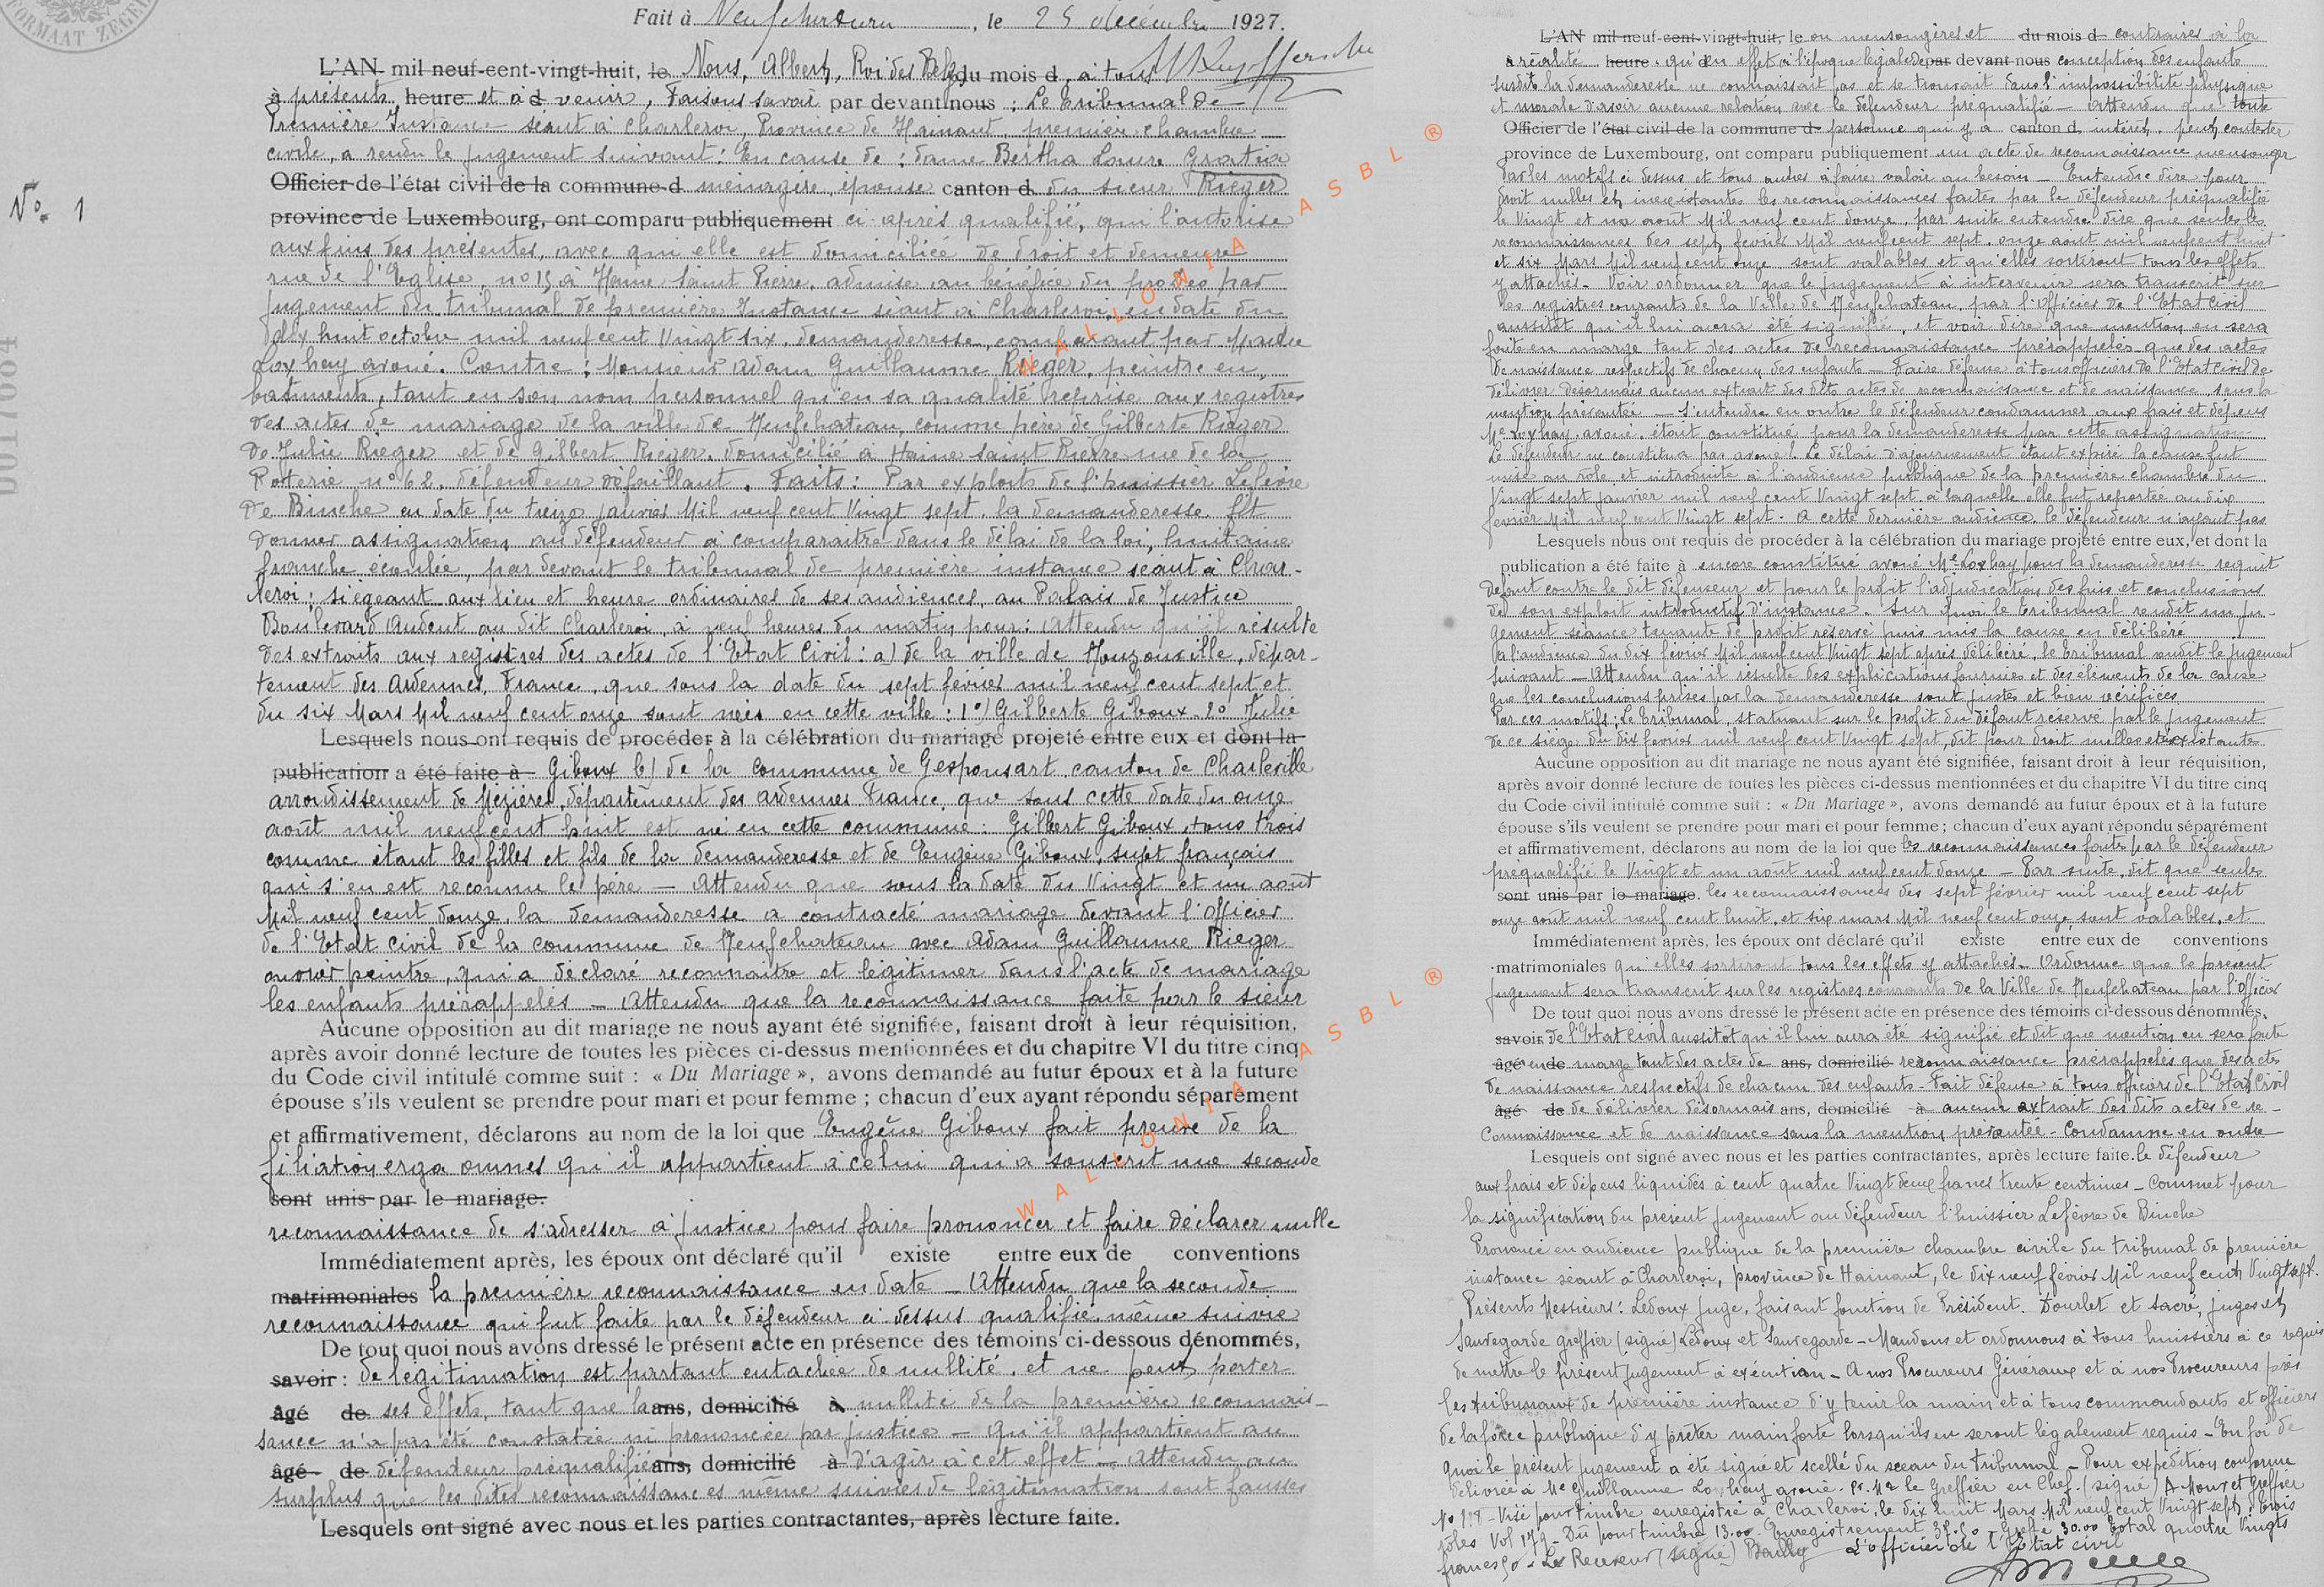 Fait à Neufchateau, le 25 décembre 1927.
L'AN mil neuf-cent-vingt-huit, le Nous, Albert, Roi des Belges du mois d , à tous
à présents heure et à d venir, Faisons savoir par devant nous : Le tribunal de
Première Instance séant à Charleroi, Province de Hainaut, première chambre
civile, a rendu le jugement suivant : En cause de : dame Bertha Laure Gratia
Officier de l'état civil de la commune d ménagère, épouse canton d du sieur Rieger
province de Luxembourg, ont comparu publiquement ci-après qualifié, qui l'autorise
aux fins des présentes, avec qui elle est domiciliée de droit et demeure
rue de l'Eglise, n° 15 à Haine Saint Pierre, admise au bénéfice du prodeo par
jugement du tribunal de première Instance séant à Charleroi, en date du
dix huit octobre mil neuf cent vingt six, demanderesse, comparant par Maître
Loxhay avoué. Contre : Monsieur Adam Guillaume Rieger, peintre en
bâtiments, tant en son nom personnel qu'en sa qualité reprise aux registres
des actes de mariage de la ville de Neufchateau, comme père de Gilberte Rieger
de Julie Rieger et de Gilbert Rieger, domicilié à Haine Saint Pierre rue de la
Poterie n° 62, défendeur défaillant. Faits : Par exploits de l'huissier Lefèvre
de Binche en date du treize janvier Mil neuf cent vingt sept, la demanderesse fit
donner assignation au défendeur à comparaitre dans le délai de la loi, huitaine
franche écoulée, par devant le tribunal de première instance séant à Char-
leroi ; siégeant aux lieu et heure ordinaires de ses audiences, au Palais de Justice
Boulevard Audent au dit Charleroi, à neuf heures du matin pour : Attendu qu'il résulte
des extraits aux registres des actes de l'Etat Civil : a) de la ville de Nouzonville, dépar-
tement des Ardennes, France, que sous la date du sept février mil neuf cent sept et
du six Mars Mil neuf cent onze sont nées en cette ville : 1°) Gilberte Giboux 2° Julie
Lesquels nous ont requis de procéder à la célébration du mariage projeté entre eux et dont la
publication a été faite à Giboux b) de la commune de Gespunsart canton de Charleville
arrondissement de Mézières, département des Ardennes France, que sous cette date du onze
août mil neuf cent huit est né en cette commune : Gilbert Giboux, tous trois
comme étant les filles et fils de la demanderesse et de Eugène Giboux, sujet français
qui s'en est reconnu le père — Attendu que sous la date du Vingt et un août
Mil neuf cent douze, la demanderesse a contracté mariage devant l'officier
de l'Etat civil de la commune de Neufchateau avec Adam Guillaume Rieger
ouvrier peintre, qui a déclaré reconnaitre et légitimer dans l'acte de mariage
les enfants prérappelés — Attendu que la reconnaissance faite par le sieur
Aucune opposition au dit mariage ne nous ayant été signifiée, faisant droit à leur réquisition,
après avoir donné lecture de toutes les pièces ci-dessus mentionnées et du chapitre VI du titre cinq
du Code civil intitulé comme suit : « Du Mariage », avons demandé au futur époux et à la future
épouse s'ils veulent se prendre pour mari et pour femme ; chacun d'eux ayant répondu séparément
et affirmativement, déclarons au nom de la loi que Eugène Giboux fait preuve de la
filiation erga omnes qu'il appartient à celui qui a souscrit une seconde
sont unis par le mariage.
reconnaissance de s'adresser à justice pour faire prononcer et faire déclarer nulle
Immédiatement après, les époux ont déclaré qu'il existe entre eux de conventions
matrimoniales la première reconnaissance en date — Attendu que la seconde
reconnaissance qui fut faite par le défendeur ci dessus qualifié, même suivie
De tout quoi nous avons dressé le présent acte en présence des témoins ci-dessous dénommés,
savoir : de légitimation est partant entachée de nullité, et ne peut porter
âgé de ses effets, tant que la ans, domicilié à nullité de la première reconnais-
sance n'a pas été constatée ni prononcée par justice — qu'il appartient au
âgé de défendeur préqualifié ans, domicilié à d'agir à cet effet — Attendu au
surplus que les dites reconnaissances même suivies de légitimation sont fausses
Lesquels ont signé avec nous et les parties contractantes, après lecture faite.
N° 1
D017004
WALLONIA ASBL ®
WALLONIA ASBL ®
L'AN mil neuf-cent-vingt-huit, le ou mensongères et du mois d contraires à la
à réalité heure. qu'en effet à l'époque légale de par devant nous conception des enfants
susdits la demanderesse ne connaissait pas et se trouvait dans l'impossibilité physique
et morale d'avoir aucune relation avec le défendeur préqualifié — Attendu que toute
Officier de l'état civil de la commune d personne qui y a canton d intérêt, peut contester
province de Luxembourg, ont comparu publiquement un acte de reconnaissance mensonger
Par les motifs ci dessus et tous autres à faire valoir au besoin — Entendre dire pour
droit nulles et inexistantes les reconnaissances faites par le défendeur préqualifié
le Vingt et un août Mil neuf cent douze, par suite entendre dire que seules les
reconnaissances des sept février Mil neuf cent sept, onze août mil neuf cent huit
et six Mars Mil neuf cent onze sont valables et qu'elles sortiront tous les effets
y attachés — Voir ordonner que le jugement à intervenir sera transcrit sur
les registres courants de la Ville de Neufchateau par l'Officier de l'Etat Civil
aussitôt qu'il lui aura été signifié, et voir dire que mention en sera
faite en marge tant des actes de reconnaissance prérappelés que des actes
de naissance respectifs de chacun des enfants — Faire défense à tous officiers de l'Etat Civil de
délivrer désormais aucun extrait des dits actes de reconnaissance et de naissance, sans la
mention présentée — S'entendre en outre le défendeur condamner aux frais et dépens
Me Loxhay, avoué, était constitué pour la demanderesse par cette assignation
Le défendeur ne constitua pas avoué. Le délai d'ajournement étant expiré la cause fut
mise au rôle et introduite à l'audience publique de la première chambre du
Vingt sept janvier mil neuf cent Vingt sept, à laquelle elle fut reportée au dix
février Mil neuf cent Vingt sept. A cette dernière audience, le défendeur n'ayant pas
Lesquels nous ont requis de procéder à la célébration du mariage projeté entre eux, et dont la
publication a été faite à encore constitué avoué Me Loxhay pour la demanderesse requit
défaut contre le dit défenseur et pour le profit l'adjudication des fins et conclusions
de son exploit introductif d'instance. Sur quoi le tribunal rendit un ju-
gement séance tenante de profit réservé puis mis la cause en délibéré
A l'audience du dix février Mil neuf cent Vingt sept après délibéré, le tribunal rendit le jugement
suivant — Attendu qu'il résulte des explications fournies et des éléments de la cause
que les conclusions prises par la demanderesse sont justes et bien vérifiées
Par ces motifs : Le tribunal, statuant sur le profit du défaut réservé par le jugement
de ce siège du dix février mil neuf cent Vingt sept, dit pour droit nulles et inexistantes
Aucune opposition au dit mariage ne nous ayant été signifiée, faisant droit à leur réquisition,
après avoir donné lecture de toutes les pièces ci-dessus mentionnées et du chapitre VI du titre cinq
du Code civil intitulé comme suit : « Du Mariage », avons demandé au futur époux et à la future
épouse s'ils veulent se prendre pour mari et pour femme ; chacun d'eux ayant répondu séparément
et affirmativement, déclarons au nom de la loi que les reconnaissances faites par le défendeur
préqualifié le Vingt et un août mil neuf cent douze — Par suite, dit que seules
sont unis par le mariage. les reconnaissances des sept février mil neuf cent sept
onze août mil neuf cent huit, et six mars Mil neuf cent onze, sont valables, et
Immédiatement après, les époux ont déclaré qu'il existe entre eux de conventions
matrimoniales qu'elles sortiront tous les effets y attachés — Ordonne que le présent
jugement sera transcrit sur les registres courants de la Ville de Neufchateau par l'officier
De tout quoi nous avons dressé le présent acte en présence des témoins ci-dessous dénommés,
savoir de l'Etat Civil aussitôt qu'il lui aura été signifié et dit que mention en sera faite
âgé en de marge tant des actes de ans, domicilié reconnaissance prérappelés que des actes
de naissance respectifs de chacun des enfants — Fait défense à tous officiers de l'Etat Civil
âgé de de délivrer désormais ans, domicilié à aucun extrait des dits actes de re-
connaissance et de naissance sans la mention présentée — Condamne en outre
Lesquels ont signé avec nous et les parties contractantes, après lecture faite. le défendeur
aux frais et dépens liquidés à cent quatre Vingt deux francs trente centimes — Commet pour
la signification du présent jugement au défendeur l'huissier Lefèvre de Binche
Prononcé en audience publique de la première chambre civile du tribunal de première
instance séant à Charleroi, province de Hainaut, le dix neuf février Mil neuf cent Vingt sept.
Présents Messieurs : Ledoux juge, faisant fonction de Président. Dourlet et Sacré, juges et
Sauvegarde greffier (signé) Ledoux et Sauvegarde — Mandons et ordonnons à tous huissiers à ce requis
de mettre le présent jugement à exécution — A nos Procureurs Généraux et à nos Procureurs près
les tribunaux de première instance d'y tenir la main et à tous commandants et officiers
de la force publique d'y prêter main forte lorsqu'ils en seront légalement requis — En foi de
quoi le présent jugement a été signé et scellé du sceau du Tribunal — Pour expédition conforme
délivrée à Me Guillaume Loxhay avoué. Pr. Mr le Greffier en Chef. (signé) A Mour et Greffier
N° 118 — Visé pour timbre enregistré à Charleroi, le dix huit Mars Mil neuf cent Vingt sept, trois
rôles Vol 179 — Dû pour timbre 13.00 Enregistrement 37.50 — Greffe 30.00 total quatre Vingts
francs 50 — Le Receveur (signé) Bailly L'officier de l'Etat civil